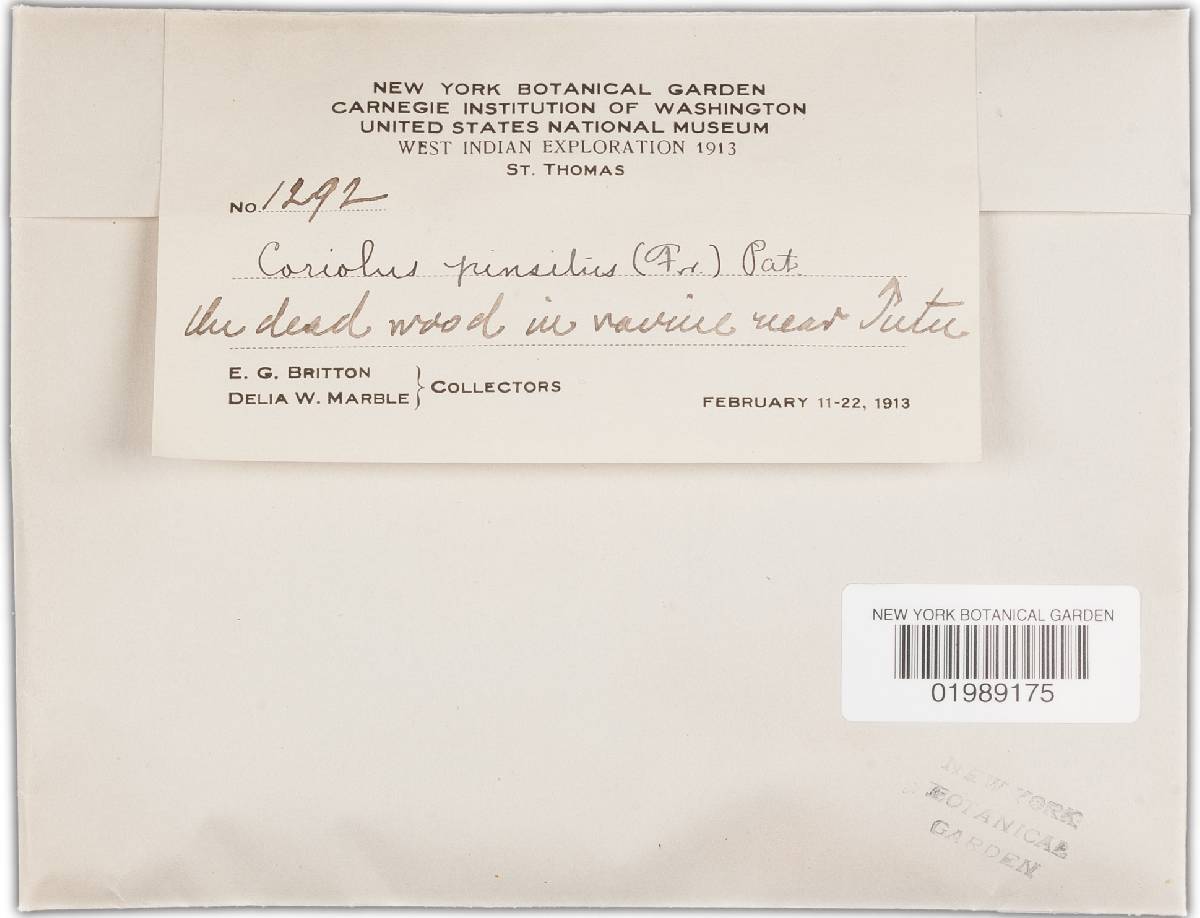 NEW YORK BOTANICAL GARDEN
CARNEGIE INSTITUTION OF WASHINGTON
UNITED STATES NATIONAL MUSEUM
WEST INDIAN EXPLORATION 1913
ST. THOMAS
No. 1292
Coriolus pinsitus (Fr.) Pat.
On dead wood in ravine near Tutu
E. G. BRITTON
DELIA W. MARBLE } COLLECTORS
FEBRUARY 11-22, 1913
NEW YORK BOTANICAL GARDEN
01989175
NEW YORK
BOTANICAL
GARDEN